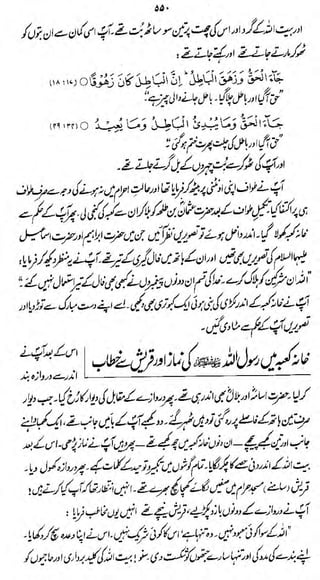 ۵۵۰
اور بیت اللہ کے گرد اور اس کی چھت پر تین سو ساٹھ بت تھے۔ آپ اسی کمان سے ان بتوں کو
ٹھوکر مارتے جاتے تھے اور کہتے جاتے تھے:
جَآءَ الْحَقُّ وَزَهَقَ الْبَاطِلُ ؕ اِنَّ الْبَاطِلَ كَانَ زَهُوْقًا ○
"حق آگیا اور باطل چلا گیا۔ باطل جانے والی چیز ہے"
جَآءَ الْحَقُّ وَمَا يُبْدِئُ الْبَاطِلُ وَمَا يُعِيْدُ ○
"حق آگیا اور باطل کی چلت پھرت ختم ہوگئی"
اور آپ کی ٹھوکر سے بت چہروں کے بل گرتے جاتے تھے۔
آپ نے طواف اپنی اونٹنی پر بیٹھ کر فرمایا تھا اور حالت احرام میں نہ ہونے کی وجہ سے صرف طواف
ہی پر اکتفا کیا۔ تکمیل طواف کے بعد حضرت عثمان بن طلحہ کو بلا کر ان سے کعبہ کی کنجی لی۔ پھر آپ کے حکم سے
خانہ کعبہ کھولا گیا۔ اندر داخل ہوئے تو تصویریں نظر آئیں جن میں حضرت ابراہیم اور حضرت اسماعیل
علیہما السلام کی تصویریں بھی تھیں اور ان کے ہاتھ میں فال گیری کے تیر تھے۔ آپ نے یہ منظر دیکھ کر فرمایا:
"اللہ ان مشرکین کو ہلاک کرے۔ خدا کی قسم ان دونوں پیغمبروں نے کبھی بھی فال کے تیر استعمال نہیں کئے۔"
آپ نے خانہ کعبہ کے اندر لکڑی کی بنی ہوئی ایک کبوتری بھی دیکھی۔ اسے اپنے دست مبارک سے توڑ دیا اور
تصویریں آپ کے حکم سے مٹا دی گئیں۔
خانہ کعبہ میں رسول اللہ ﷺ کی نماز اور قریش سے خطاب
اس کے بعد آپ نے
اندر سے دروازہ بند
کر لیا۔ حضرت اسامہ اور بلال بھی اندر ہی تھے۔ پھر دروازے کے مقابل کی دیوار کا رخ کیا۔ جب دیوار
صرف تین ہاتھ کے فاصلے پر رہ گئی تو وہیں ٹھہر گئے۔ دو کھمبے آپ کے بائیں جانب تھے، ایک کھمبا داہنے
جانب اور تین کھمبے پیچھے۔ ان دنوں خانہ کعبہ میں چھ کھمبے تھے۔ پھر وہیں آپ نے نماز پڑھی۔ اس کے بعد
بیت اللہ کے اندرونی حصے کا چکر لگایا۔ تمام گوشوں میں تکبیر و توحید کے کلمات کہے۔ پھر دروازہ کھول دیا۔
قریش (سامنے) مسجد حرام میں صفیں لگائے کھچا کھچ بھرے تھے۔ انہیں انتظار تھا کہ آپ کیا کرتے ہیں؟
آپ نے دروازے کے دونوں بازو پکڑ لیے، قریش نیچے تھے انہیں یوں مخاطب فرمایا:
"اللہ کے سوا کوئی معبود نہیں۔ وہ تنہا ہے، اس کا کوئی شریک نہیں۔ اس نے اپنا وعدہ سچ کر دکھایا۔
اپنے بندے کی مدد کی اور تنہا سارے جتھوں کو شکست دی۔ سنو! بیت اللہ کی کلید برداری اور حاجیوں کو